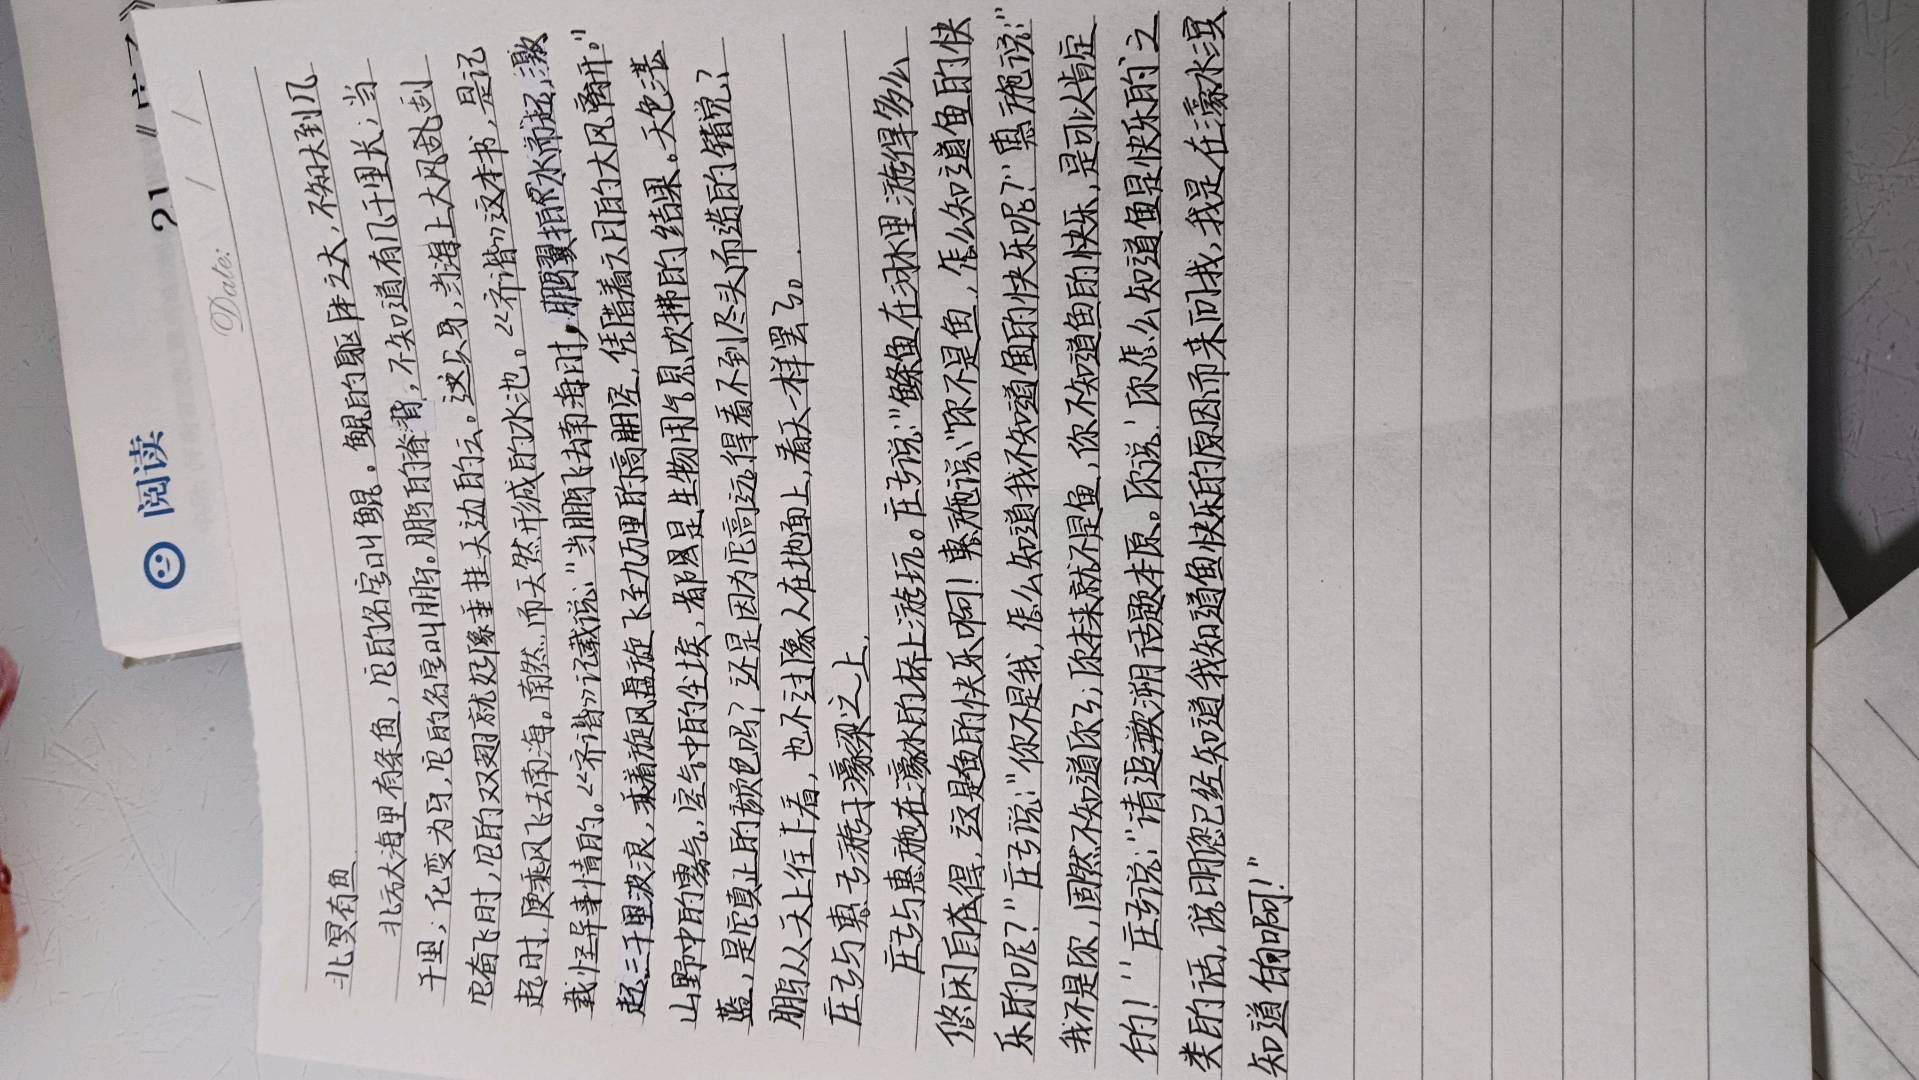 阅读
21《庄子》
Date: / /
北冥有鱼
北方大海里有条鱼,它的名字叫鲲。鲲的躯体之大,不知大到几
千里;化变为鸟,它的名字叫鹏。鹏的脊背,不知道有几千里长;当
它奋飞时,它的双翅就好像垂挂天边的云。这只鸟,当海上大风乱刮
起时,便乘风飞去南海。南然,而天然形成的水池。《齐谐》这本书,是记
载怪异事情的。《齐谐》记载说:“当鹏飞去南海时,鹏翼拍水而起,激
起三千里波浪,乘着旋风盘旋飞至九万里的高朋空,凭借着六月的大风离开。”
山野中的雾气,空气中的尘埃,都是生物用气息吹拂的结果。天色湛
蓝,是它真正的颜色吗?还是因为它高远得看不到尽头而造的错觉?
鹏从天上往下看,也不过像人在地面上,看天一样罢了。
庄子与惠子游于濠梁之上
庄子与惠施在濠水的桥上游玩。庄子说:“鲦鱼在水里游得多么
悠闲自在得,这是鱼的快乐啊!惠施说:“你不是鱼,怎么知道鱼的快
乐的呢?”庄子说:“你不是我,怎么知道我不知道鱼的快乐呢?”惠施说:“
我不是你,固然不知道你了;你本来就不是鱼,你不知道鱼的快乐,是可以肯定
的!”庄子说:“请追溯话题本原。你说‘你怎么知道鱼是快乐的’之
类的话,说明您已经知道我知道鱼快乐的原因而来问我,我是在濠水边
知道的啊!”